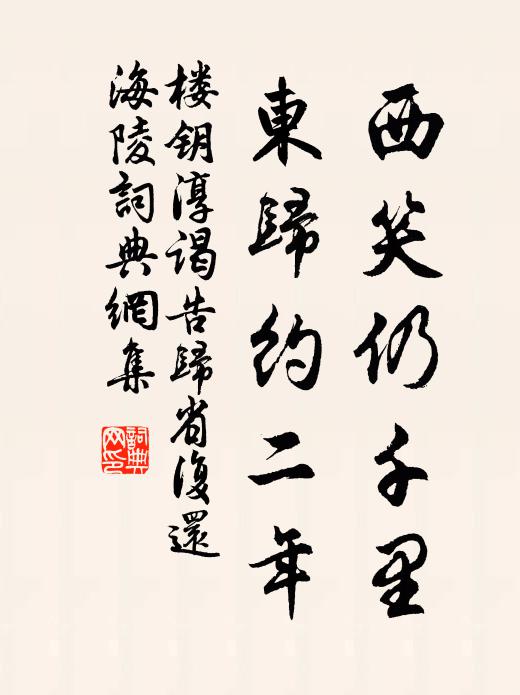 西笑仍千里
東歸约二年
楼钥淳谒告歸省復還
海陵詞典網集
詞典网印